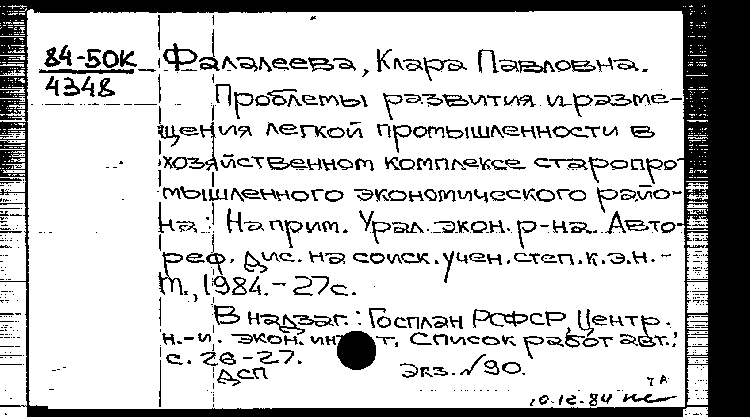 84-50К
4348
Фалалеева, Клара Павловна.
Проблемы развития и разме-
щения легкой промышленности в
хозяйственном комплексе старопро-
мышленного экономического райо-
на: На прим. Урал. экон. р-на. Авто-
реф. дис. на соиск. учен. степ. к.э.н. -
М., 1984. - 27с.
В надзаг.: Госплан РСФСР, Центр.
н.-и. экон. ин т, Список работ авт.:
с. 26-27.
ДСП
экз. √90.
10.12.84